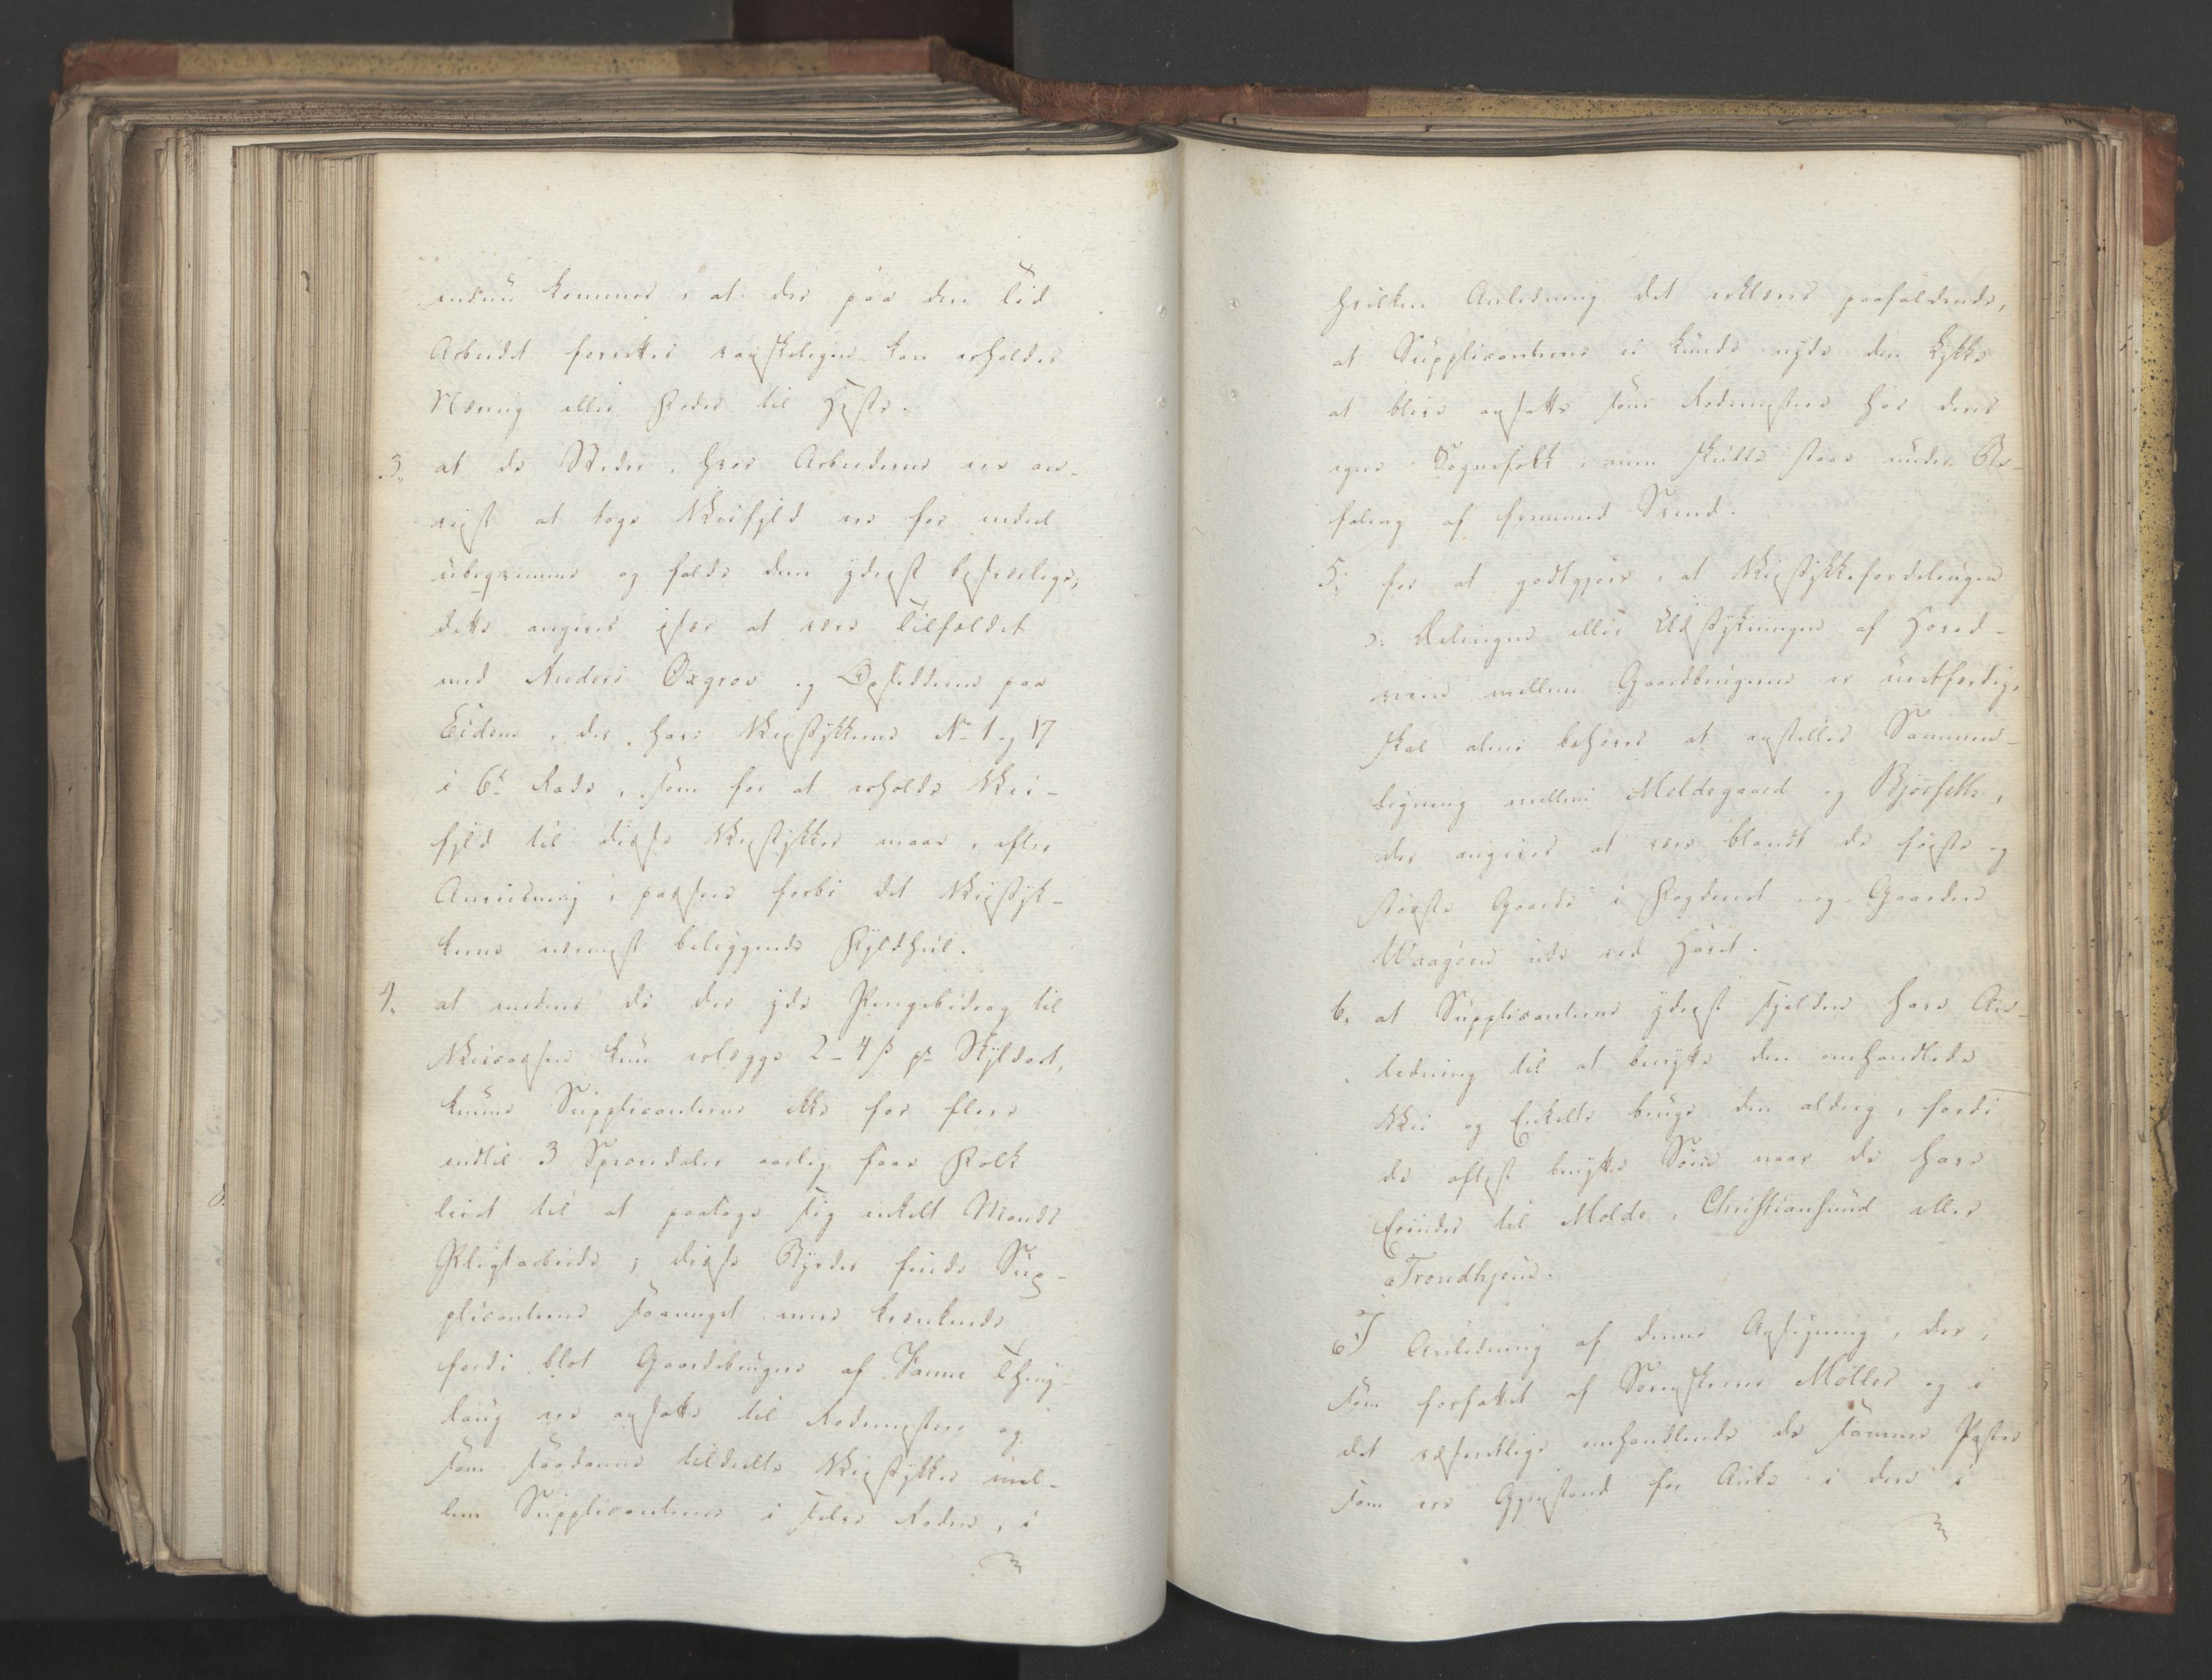 endnu kommer, at der paa den Tid
Arbeidet forrettes vanskeligen kan erholdes
Næring eller Foder til Heste.
3, at de Steder, hvor Arbeiderne ere an-
viist at tage Veifyld ere for endeel
ubeqvemme og falde dem yderst besværlige;
dette angives især at være Tilfældet
med Anders Oxgrov og Opsidderne paa
Eidem, der have Veistykkerne No 1 og 17
i 6te Rode, som for at erholde Vei-
fyld til disse Veistykker maae, efter
Anviisning, passere forbi det Veistyk-
kerne nærmest beliggende Fyldhul.
4, at medens de der yde Pengebidrag til
Veivæsen kun erlægge 2-4 ß pr Skyldort,
kunne Supplicanterne ikke for flere
indtil 3 Speciedaler aarlig faae Folk
leiet til at paatage sig enkelt Mands
Pligtarbeide; disse Byrder finde Sup-
plicanterne saameget mere krænkende
fordi blot Gaardebrugere af Fanne Thing-
laug ere ansatte til Rodemestere og
som saadanne tildeelte Veistykker imel-
lem Supplicanterne i selve Roden, i
hvilken Anledning det erklæres paafaldende,
at Supplicanterne ei kunde nyde den Lykke
at blive ansatte som Rodemestere hos deres
egne Sognefolk, men skulle staae under Be-
faling af fremmed Svend.
5, for at godtgjøre, at Veistykkefordelingen
ɔ: Delingen eller Udstykningen af Hoved-
veien mellem Gaardbrugerne er uretfærdig,
skal alene behøves at anstilles Sammen-
ligning mellem Meldegaard og Bjørsette,
der angives at være blandt de første og
største Gaarde i Fogderiet og Gaarden
Waagøen ude ved Havet.
6, at Supplicanterne yderst sjelden have An-
ledning til at benytte den omhandlede
Vei og Enkelte bruge den aldrig, fordi
de oftest benytte Søen naar de have
Erinder til Molde, Christiansund eller
Trondhjem.
I Anledning af denne Ansøgning, der,
som forfattet af Sorenskriver Møller og i
det væsentlige omhandlende de samme Poster
som ere Gjenstand for Anke i den i